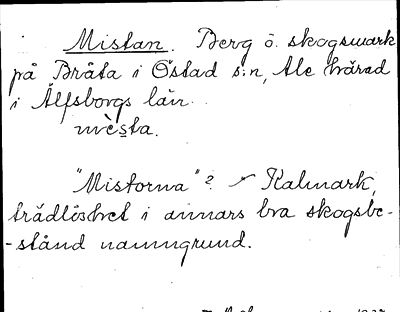 Mistan. Berg o. skogsmark
på Bråta i Östad s:n, Ale härad
i Älfsborgs län.
mèsta.
"Mistorna"? Kalmark,
trädlöshet i annars bra skogsbe-
-stånd namngrund.